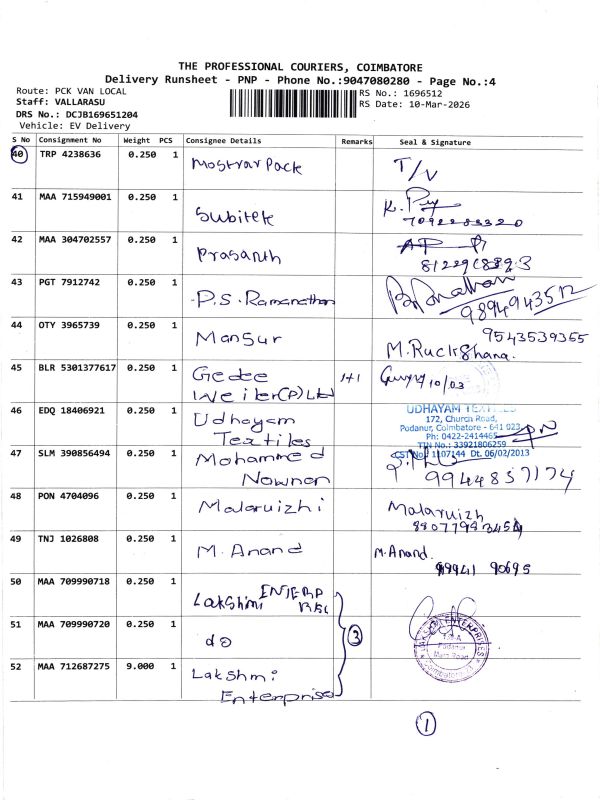 THE PROFESSIONAL COURIERS, COIMBATORE
Delivery Runsheet - PNP - Phone No.:9047080280 - Page No.:4
Route: PCK VAN LOCAL
Staff: VALLARASU
DRS No.: DCJB169651204
Vehicle: EV Delivery
RS No.: 1696512
RS Date: 10-Mar-2026
S No Consignment No Weight PCS Consignee Details Remarks Seal & Signature
40 TRP 4238636 0.250 1 Mostrar Pack T/V
41 MAA 715949001 0.250 1 Subitek K.
42 MAA 304702557 0.250 1 Prasanth
43 PGT 7912742 0.250 1 P.S. Ramanathan
9894943512
44 OTY 3965739 0.250 1 Mansur 9543539365
M.Ruckshana.
45 BLR 5301377617 0.250 1 Gedee 1+1 10/03
Weiler(P)Ltd
46 EDQ 18406921 0.250 1 Udhayam
Textiles
UDHAYAM TEXTILES
172, Church Road,
Podanur, Coimbatore - 641 023
Ph: 0422-2414465
TTN No.: 33921806259
CST No.: 1107144 Dt. 06/02/2013
47 SLM 390856494 0.250 1 Mohammed
Nowman
9944837174
48 PON 4704096 0.250 1 Malaruizhi Malaruizh
49 TNJ 1026808 0.250 1 M.Anand M.Anand.
99941 90695
50 MAA 709990718 0.250 1 Lakshmi
51 MAA 709990720 0.250 1 do 3
52 MAA 712687275 9.000 1 Lakshmi
Enterprise
LAKSHMI ENTERPRISES
Podanur
Main Road
Coimbatore
1